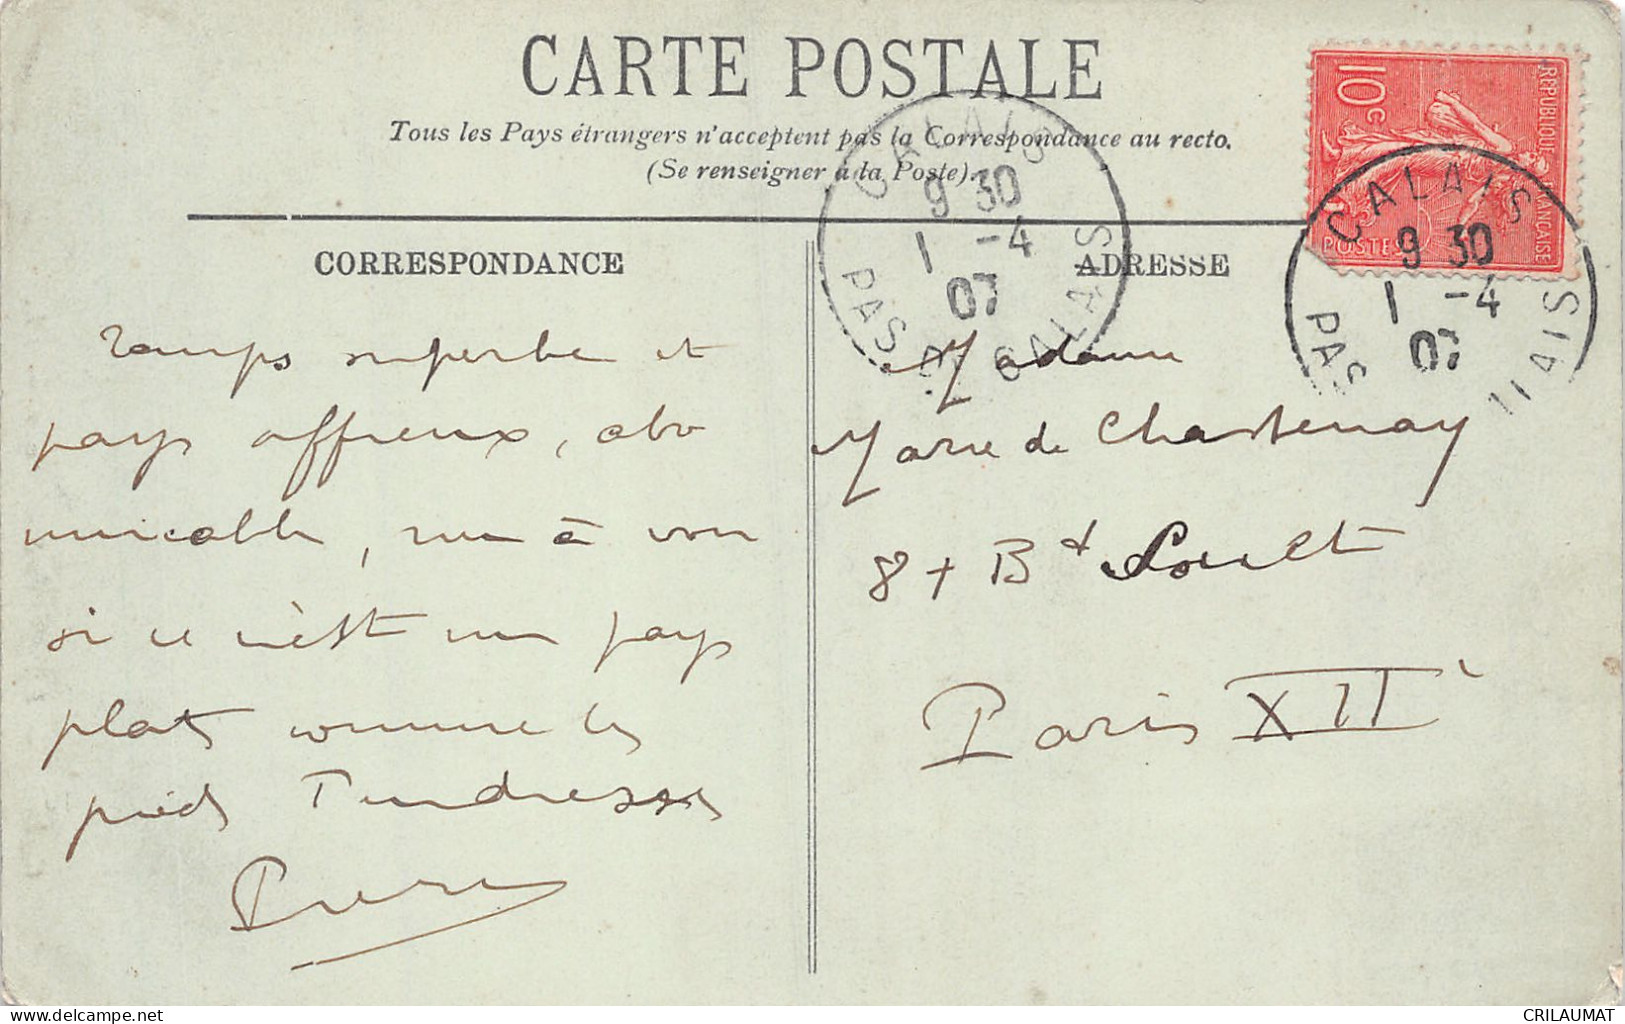 CARTE POSTALE
Tous les Pays étrangers n'acceptent pas la Correspondance au recto.
(Se renseigner à la Poste).
10c
REPUBLIQUE FRANCAISE
POSTES
CALAIS
9 30
1 -4
07
PAS DE CALAIS
CALAIS
9 30
1 -4
07
PAS
ALAIS
CORRESPONDANCE
Temps superbe et
pays affreux, abo
minable, rien à voir
si ce n'est un pays
plat comme les
pieds Tendresses
Pierre
ADRESSE
Madame
Marie de Chastenay
87 Bd Soult
Paris XII
CRILAUMAT
delcampe.net